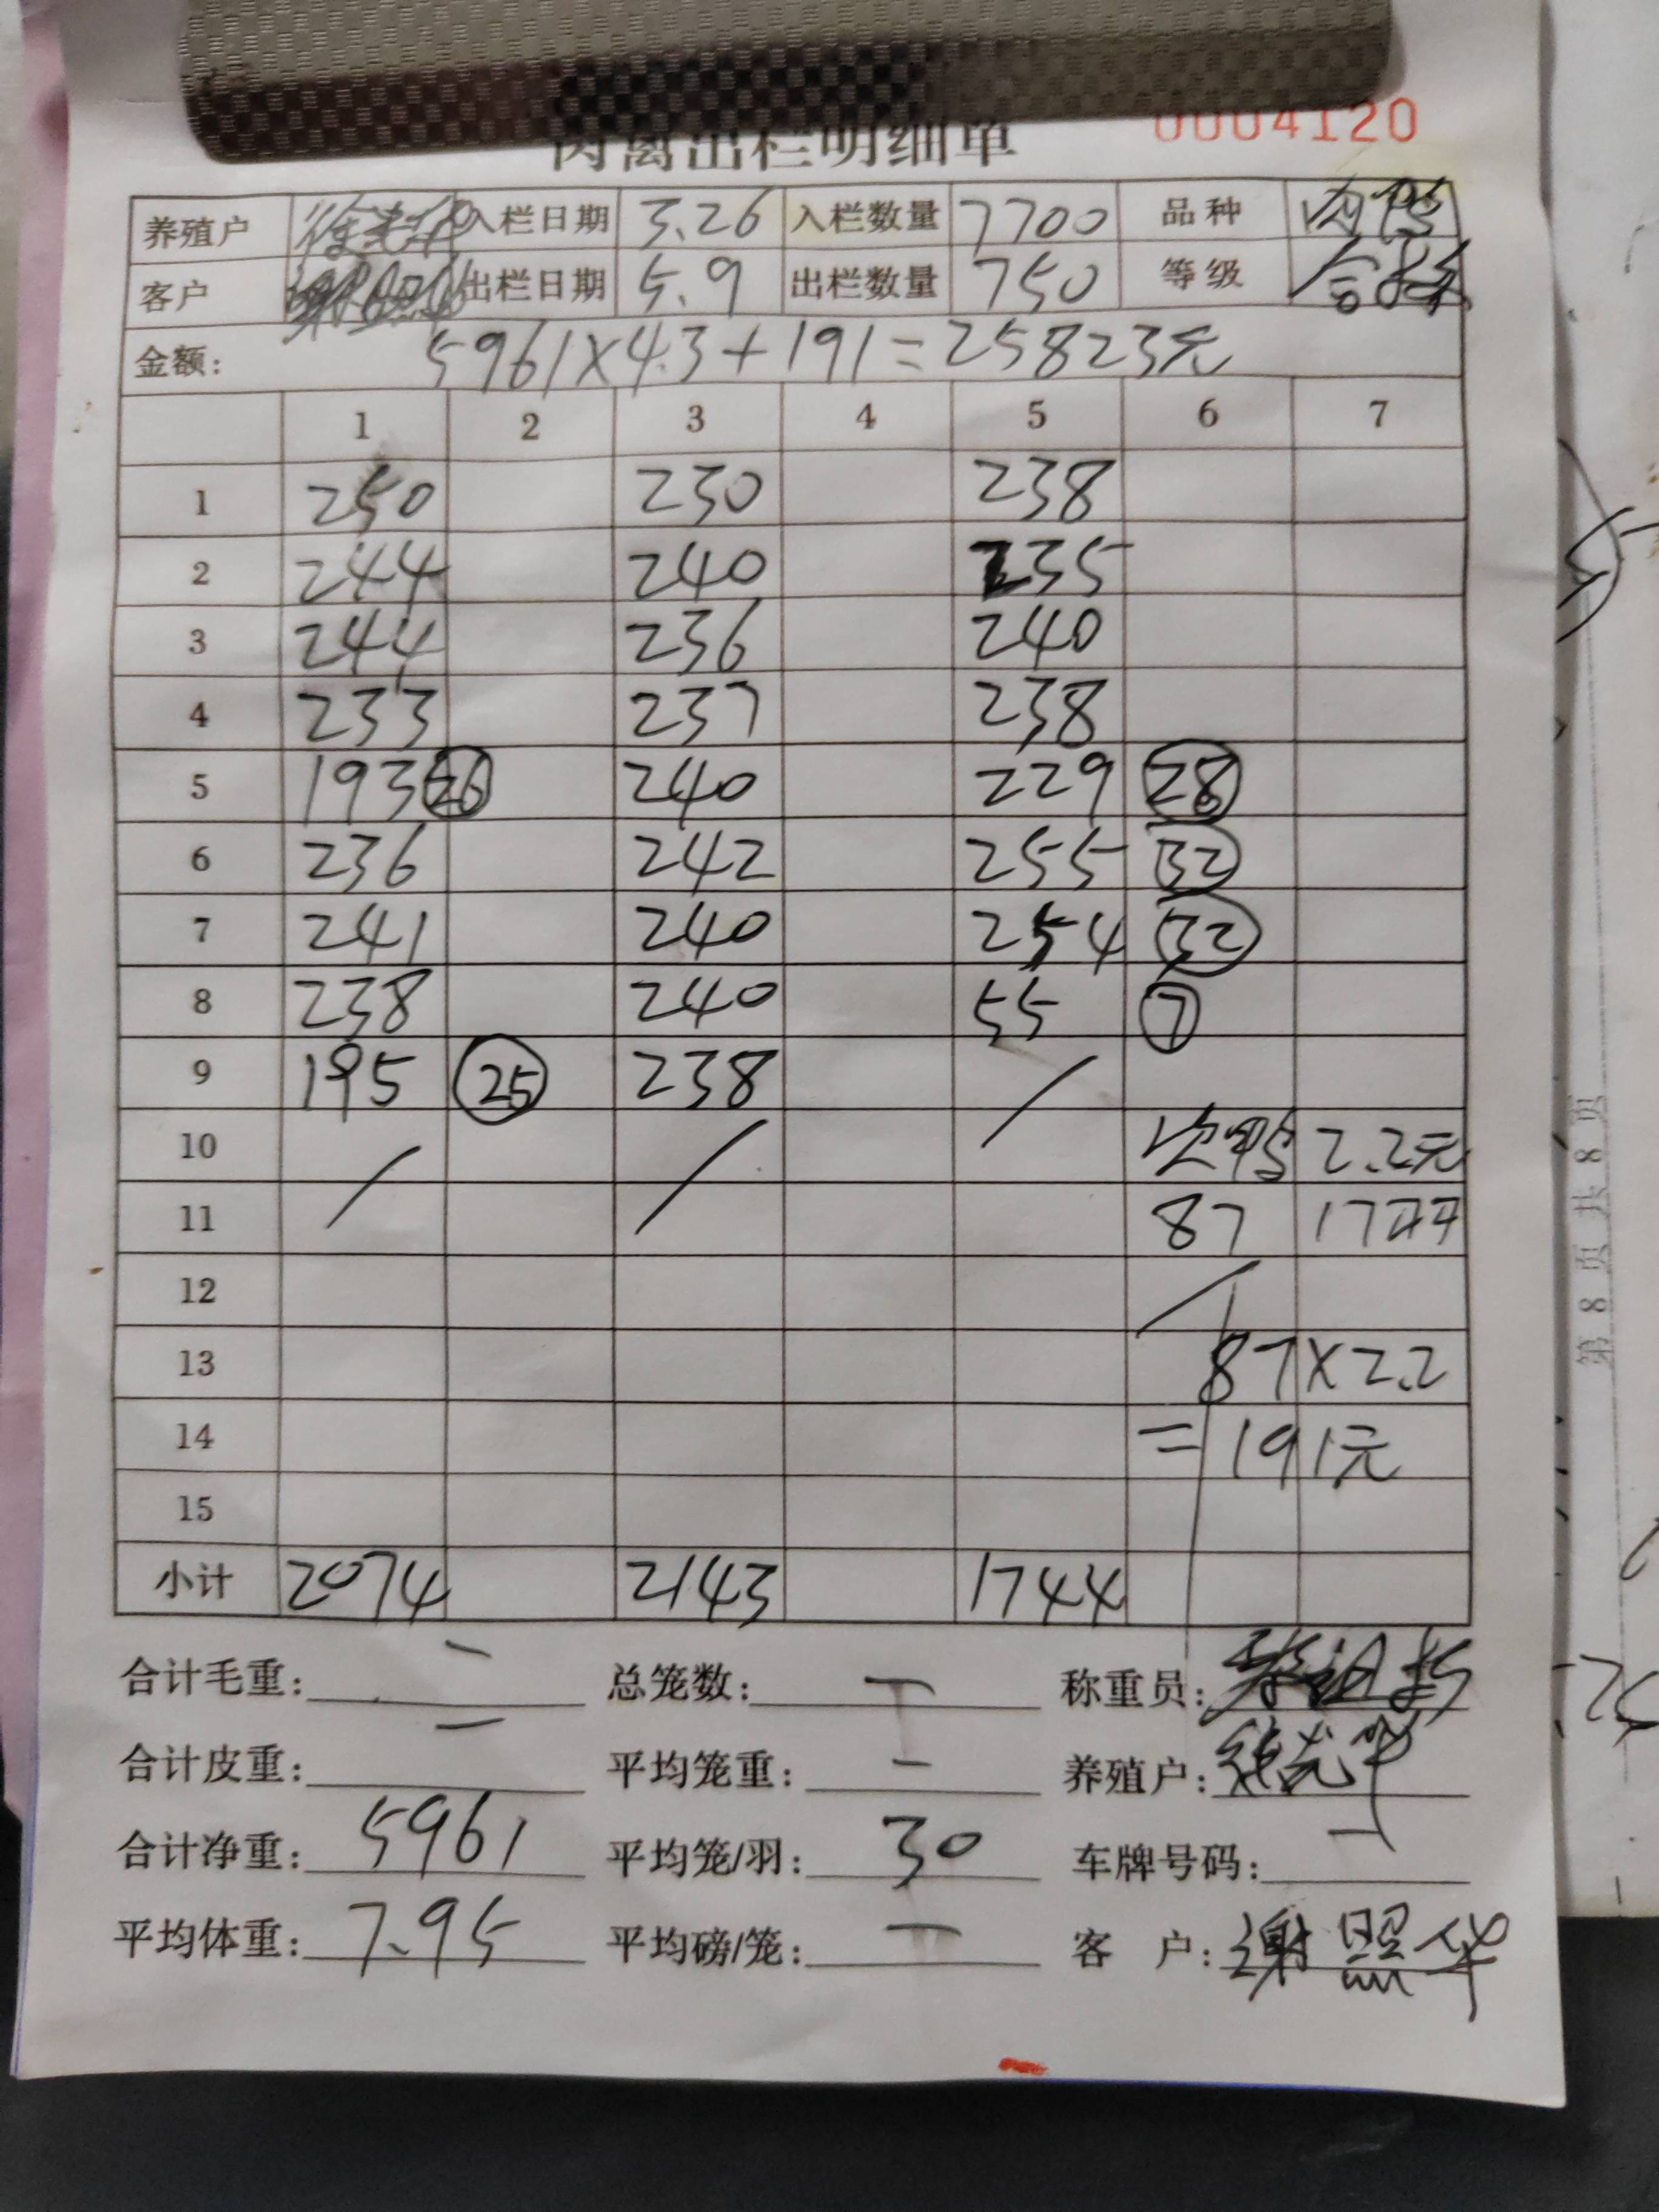 肉禽出栏明细单 0004120
养殖户 入栏日期 3.26 入栏数量 7700 品种 肉鸭
客户 出栏日期 5.9 出栏数量 750 等级 合格
金额: 5961×4.3+191=25823元
1 2 3 4 5 6 7
1 250 230 238
2 244 240 235
3 244 236 240
4 233 237 238
5 193 26 240 229 28
6 236 242 255 32
7 241 240 254 32
8 238 240 55 7
9 195 25 238
10 次鸭 2.2元
11 87 17只
12
13 87×2.2
14 =191元
15
小计 2074 2143 1744
合计毛重: 总笼数: 称重员:
合计皮重: 平均笼重: 养殖户:
合计净重: 5961 平均笼/羽: 30 车牌号码:
平均体重: 7.95 平均磅/笼: 客户: 谢照华
第 8 页 共 8 页